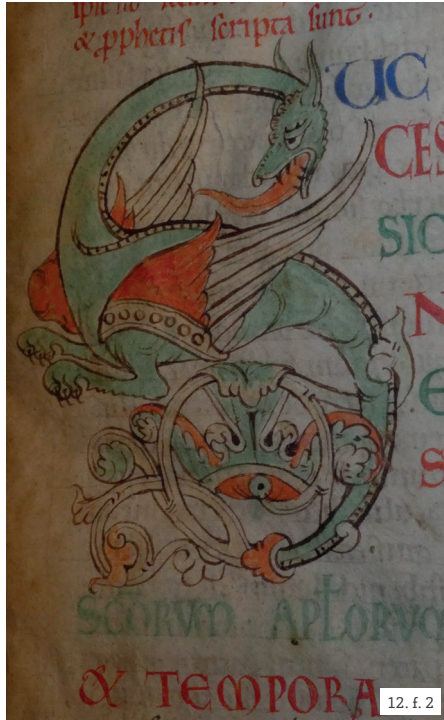 ipse no
& pphetis scripta sunt.
UC
CES
SIO
N
E
S
SCORVM APLORVM
& TEMPORA
12. f. 2